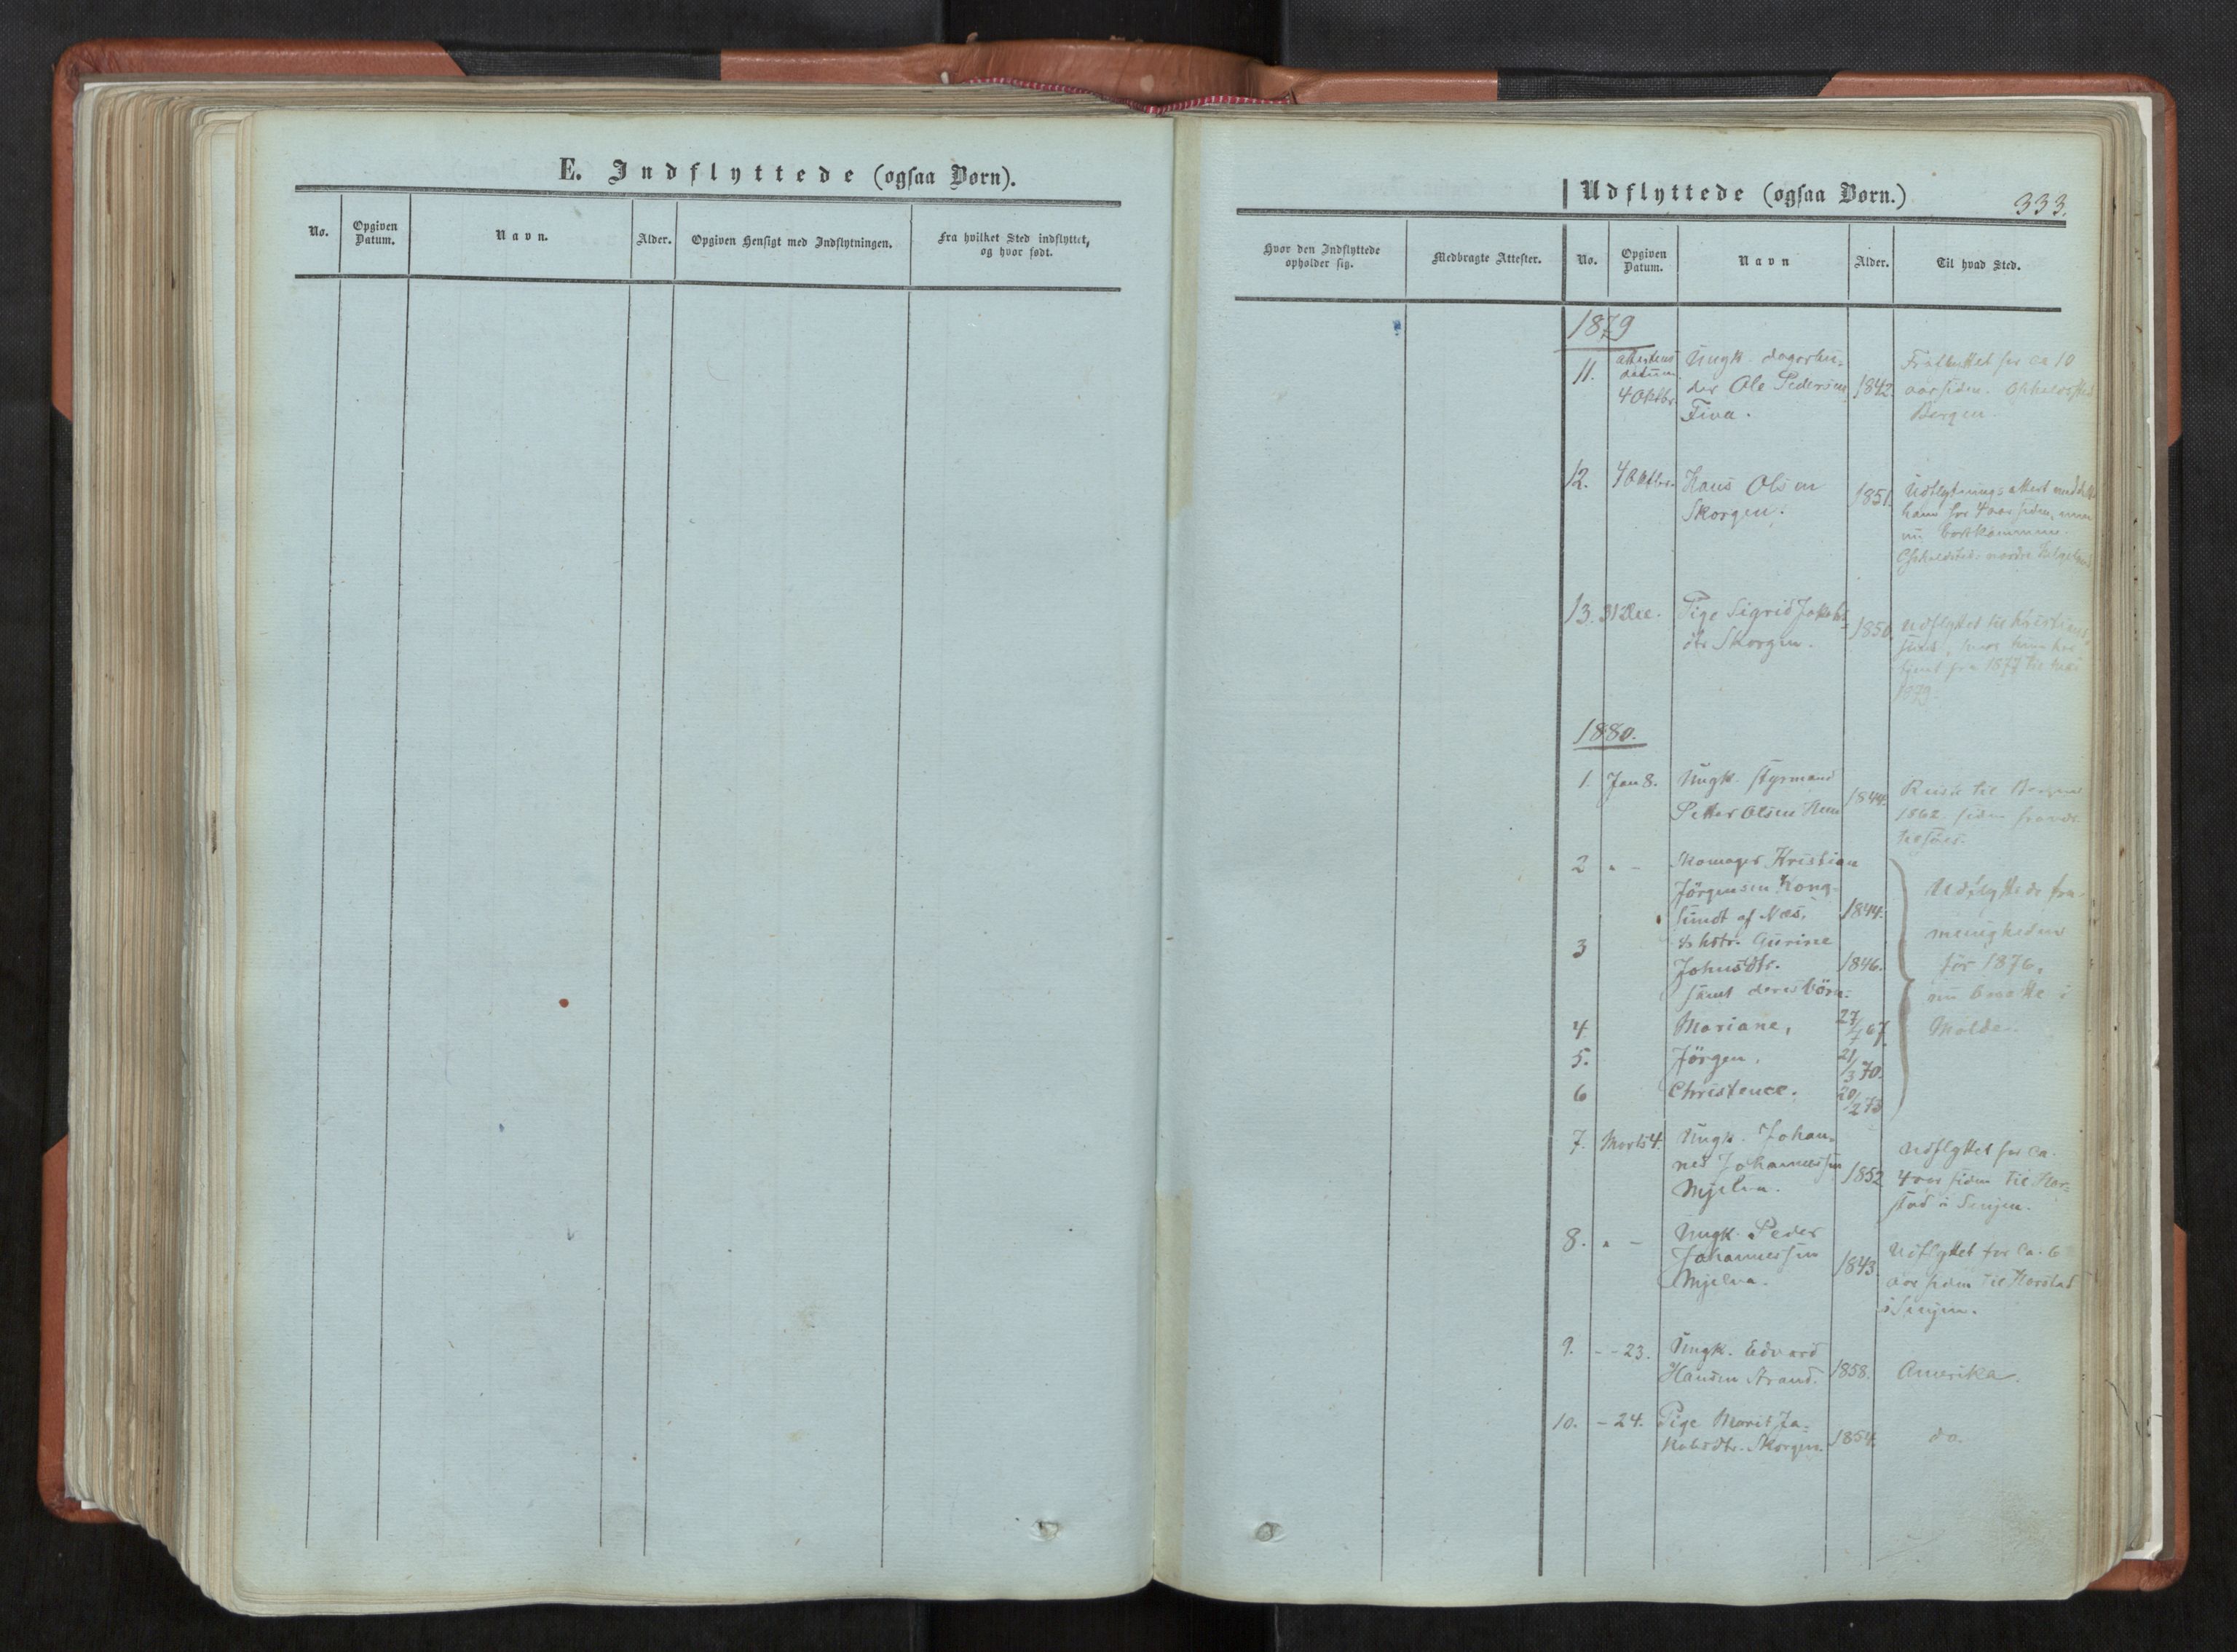 E. Indflyttede (ogsaa Børn).
No.
Opgiven
Datum.
Navn.
Alder.
Opgiven Hensigt med Indflytningen.
Fra hvilket Sted indflyttet,
og hvor født.
Udflyttede (ogsaa Børn.)
333.
Hvor den Indflyttede
opholder sig.
Medbragte Attester.
No.
Opgiven
Datum.
Navn
Alder.
Til hvad Sted.
1879
11.
attestens
datum
4 Oktbr.
Ungk.
der Ole Pedersen
Fiva.
1842.
for ca 10
aar siden. Opholdssted
Bergen
12.
4 Oktbr.
Hans Olsen
Skorgen.
1851.
Udflytnings attest meddelt
ham for 4 aar siden, men
nu bortkommen.
Opholdsted: nordre Helgeland
13.
31 Dec.
Pige Sigrid Jakobs
dtr Skorgen.
1850.
Udflyttet til Kristians
sund, hvor hun har
tjent fra 1877 til
1879.
1880.
1.
Jan 8.
Ungk. styrmand
Petter Olsen Hem
1844.
Reiste til Bergen
1862. siden
2
" -
Skomager Kristian
Jørgensen Kong-
sundt af Næs.
1844.
Udflyttede fra
menigheden
før 1876,
nu bosatte i
Molde.
3
& hstr. Gurine
Johnsdtr.
1846.
samt deres børn:
4
Mariane,
27/7 67.
5.
Jörgen.
21/3 70.
6
Christence.
20/2 73
7.
Marts 4.
Ungk. Johan-
nes Johannessen
Mjelva.
1852
Udflyttet for ca.
4 aar siden til Har-
stad i Senjen.
8.
" -
Ungk. Peder
Johannessen
Mjelva.
1843.
Udflyttet for ca. 6
aar siden til Harstad
i Senjen.
9.
- - 23.
Ungk. Edvard
Hansen Strand.
1858.
Amerika.
10.
- 24.
Pige Marit Ja-
kobsdtr. Skorgen.
1854.
do.